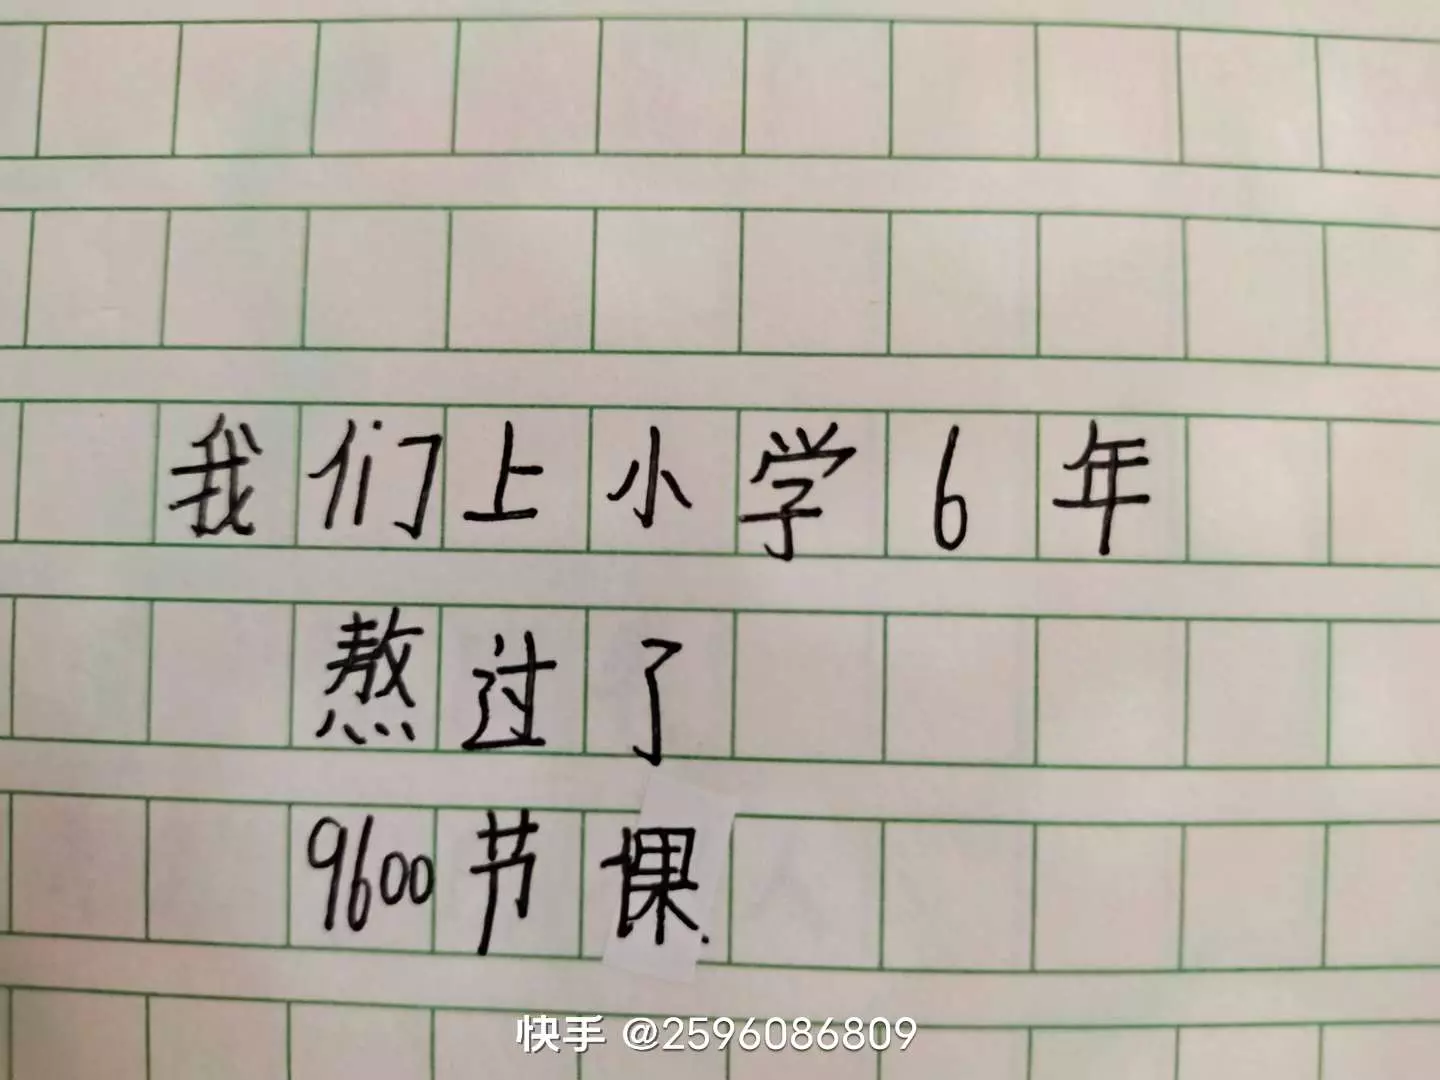 我们上小学6年
熬过了
9600节课.
快手 @2596086809